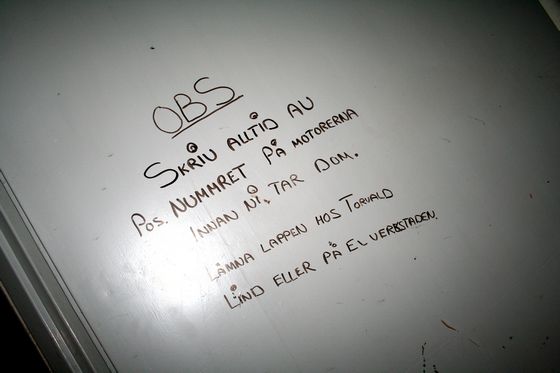 OBS
SKRIV ALLTID AV
POS. NUMMRET PÅ MOTORERNA
INNAN NI. TAR DOM.
LÄMNA LAPPEN HOS TORVALD
LIND ELLER PÅ EL VERKSTADEN.